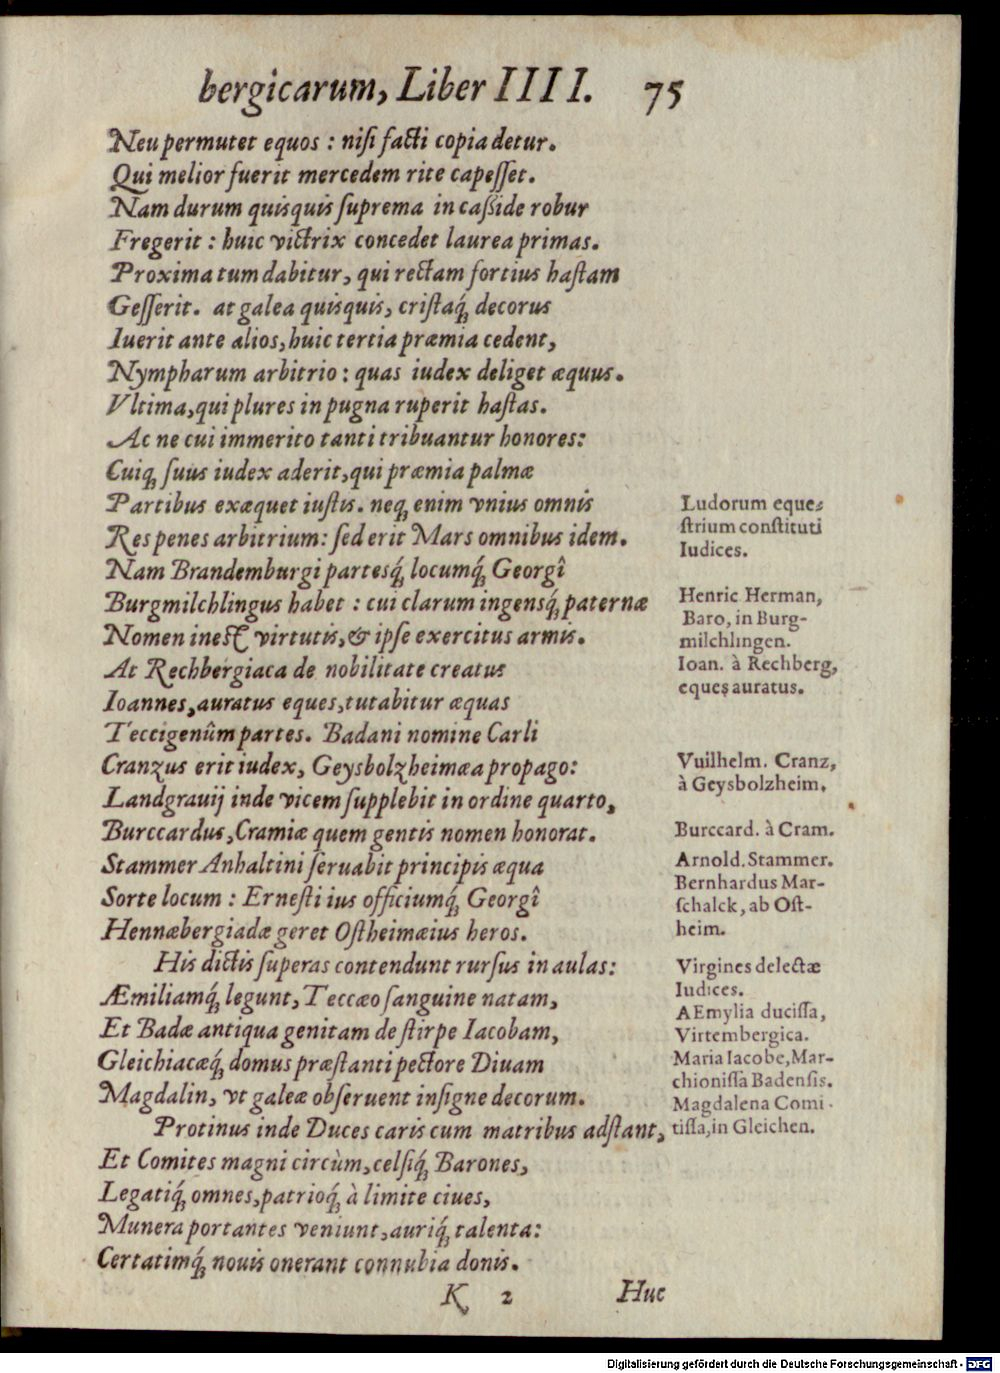 bergicarum, Liber IIII. 75
Neu permutet equos : nisi facti copia detur.
Qui melior fuerit mercedem rite capesset.
Nam durum quisquis suprema in casside robur
Fregerit : huic victrix concedet laurea primas.
Proxima tum dabitur, qui rectam fortius hastam
Gesserit. at galea quisquis, cristaq́; decorus
Iuerit ante alios, huic tertia præmia cedent,
Nympharum arbitrio : quas iudex deliget æquus.
Vltima, qui plures in pugna ruperit hastas.
Ac ne cui immerito tanti tribuantur honores:
Cuiq; suus iudex aderit, qui præmia palmæ
Partibus exæquet iustis. neq; enim vnius omnis
Res penes arbitrium: sed erit Mars omnibus idem.
Nam Brandemburgi partesq́; locumq́; Georgî
Burgmilchlingus habet : cui clarum ingensq́; paternæ
Nomen inest virtutis, & ipse exercitus armis.
At Rechbergiaca de nobilitate creatus
Ioannes, auratus eques, tutabitur æquas
Teccigenûm partes. Badani nomine Carli
Cranzus erit iudex, Geysbolzheimæa propago:
Landgrauij inde vicem supplebit in ordine quarto,
Burccardus, Cramiæ quem gentis nomen honorat.
Stammer Anhaltini seruabit principis æqua
Sorte locum : Ernesti ius officiumq́; Georgî
Hennæbergiadæ geret Ostheimæius heros.
His dictis superas contendunt rursus in aulas:
Æmiliamq́; legunt, Teccæo sanguine natam,
Et Badæ antiqua genitam de stirpe Iacobam,
Gleichiacæq́; domus præstanti pectore Diuam
Magdalin, vt galeæ obseruent insigne decorum.
Protinus inde Duces caris cum matribus adstant,
Et Comites magni circùm, celsiq́; Barones,
Legatiq́; omnes, patrioq́; à limite ciues,
Munera portantes veniunt, auriq́; talenta:
Certatimq́; nouis onerant connubia donis.
K 2 Huc
Ludorum eque-
strium constituti
Iudices.
Henric Herman,
Baro, in Burg-
milchlingen.
Ioan. à Rechberg,
eques auratus.
Vuilhelm. Cranz,
à Geysbolzheim,
Burccard. à Cram.
Arnold. Stammer.
Bernhardus Mar-
schalck, ab Ost-
heim.
Virgines delectæ
Iudices.
AEmylia ducissa,
Virtembergica.
Maria Iacobe, Mar-
chionissa Badensis.
Magdalena Comi-
tissa, in Gleichen.
Digitalisierung gefördert durch die Deutsche Forschungsgemeinschaft - DFG